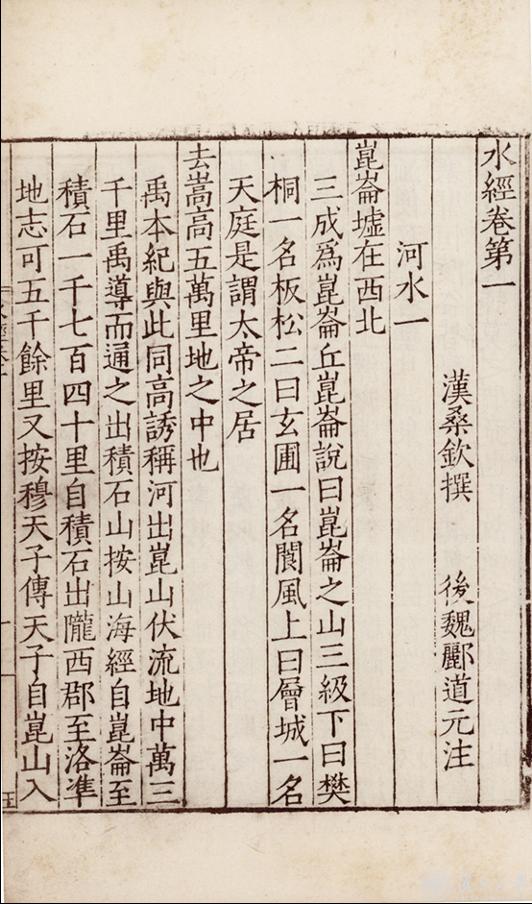 水經卷第一
漢桑欽撰 後魏酈道元注
河水一
崑崙墟在西北
三成為崑崙丘崑崙說曰崑崙之山三級下曰樊
桐一名板松二曰玄圃一名閬風上曰層城一名
天庭是謂太帝之居
去嵩高五萬里地之中也
禹本紀與此同高誘稱河出崑山伏流地中萬三
千里禹導而通之出積石山按山海經自崑崙至
積石一千七百四十里自積石出隴西郡至洛準
地志可五千餘里又按穆天子傳天子自崑山入